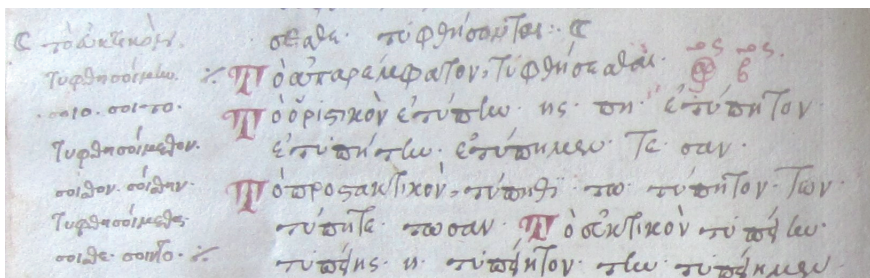 τὸ εὐκτικὸν.
τυφθησοίμην.
σοιο. σοιτο.
τυφθησοίμεθον.
σοισθον. σοίσθην.
τυφθησοίμεθα.
σοισθε. σοιντο.
σεσθε. τυφθήσονται:
Τὸ ἀπαρέμφατον, τυφθήσεσθαι.
Τὸ ὁριστικὸν ἐτύπην. ης. πη. ἐτύπητον.
ἐτυπήτην. ἐτύπημεν. τε. σαν.
Τὸ προστακτικὸν, τύπηθι. τω. τύπητον. των.
τύπητε. τωσαν. Τὸ εὐκτικὸν τυπείην.
τυπείης. η. τυπείητον. την. τυπείημεν